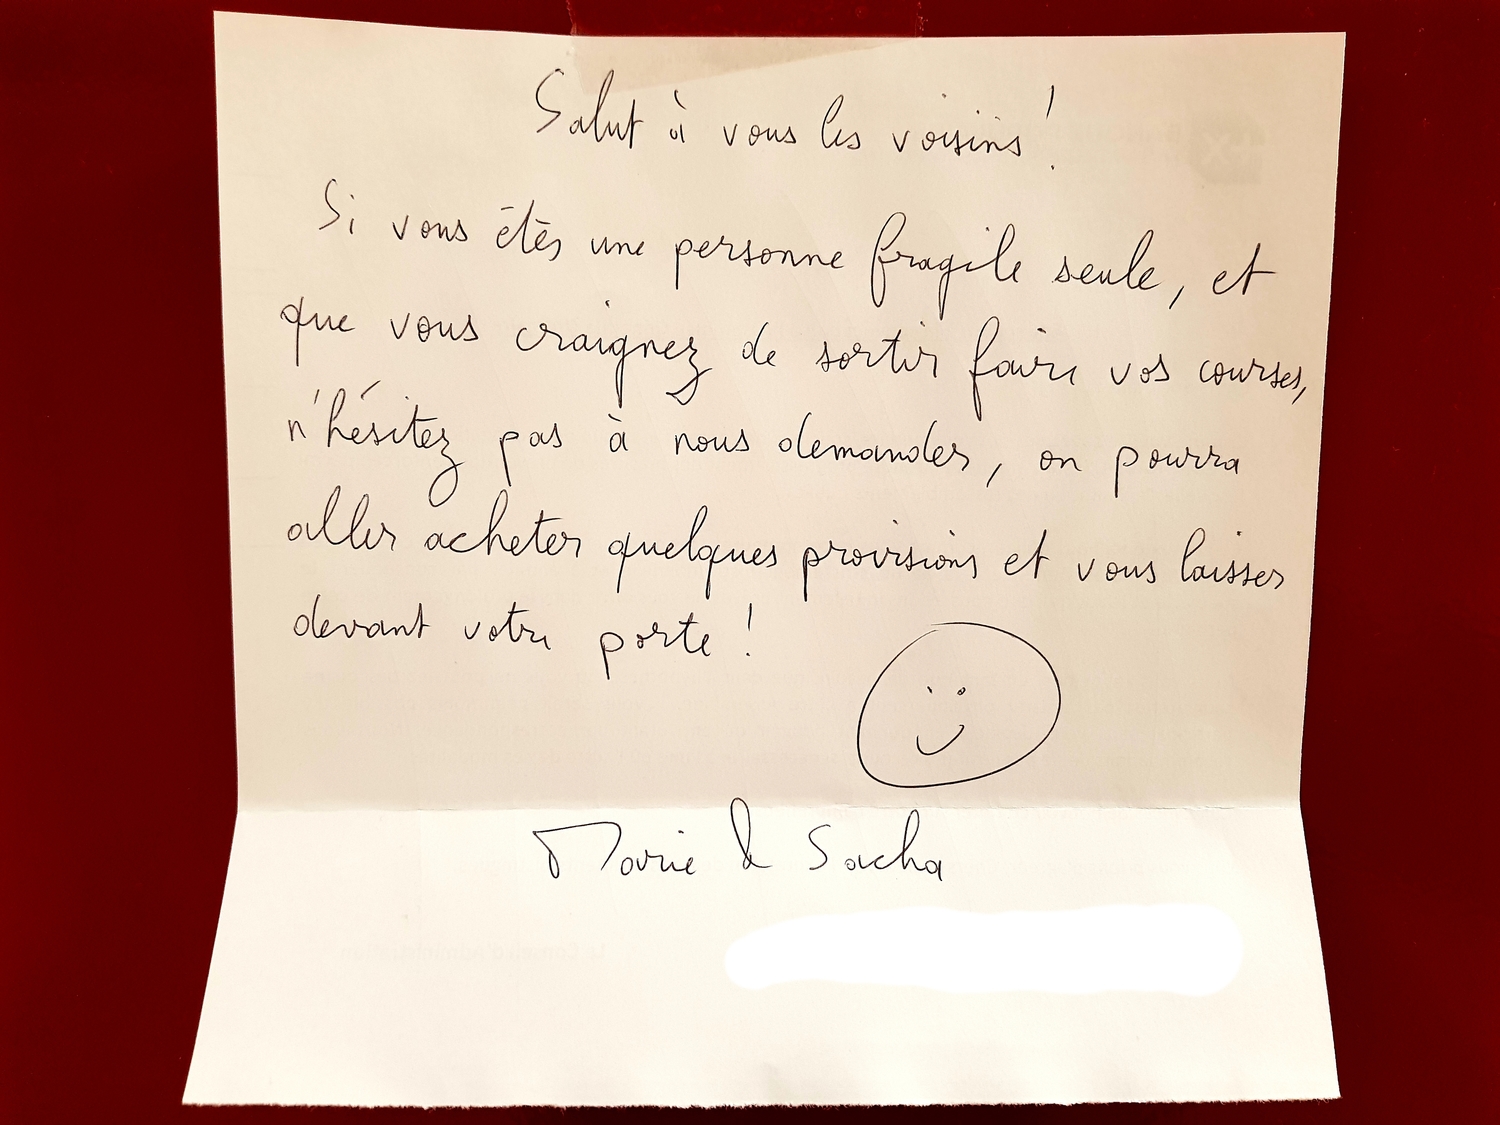 Salut à vous les voisins !
Si vous êtes une personne fragile seule, et
que vous craignez de sortir faire vos courses,
n'hésitez pas à nous demander, on pourra
aller acheter quelques provisions et vous laisser
devant votre porte !
Marie & Sacha
Le Conseil d'Administration